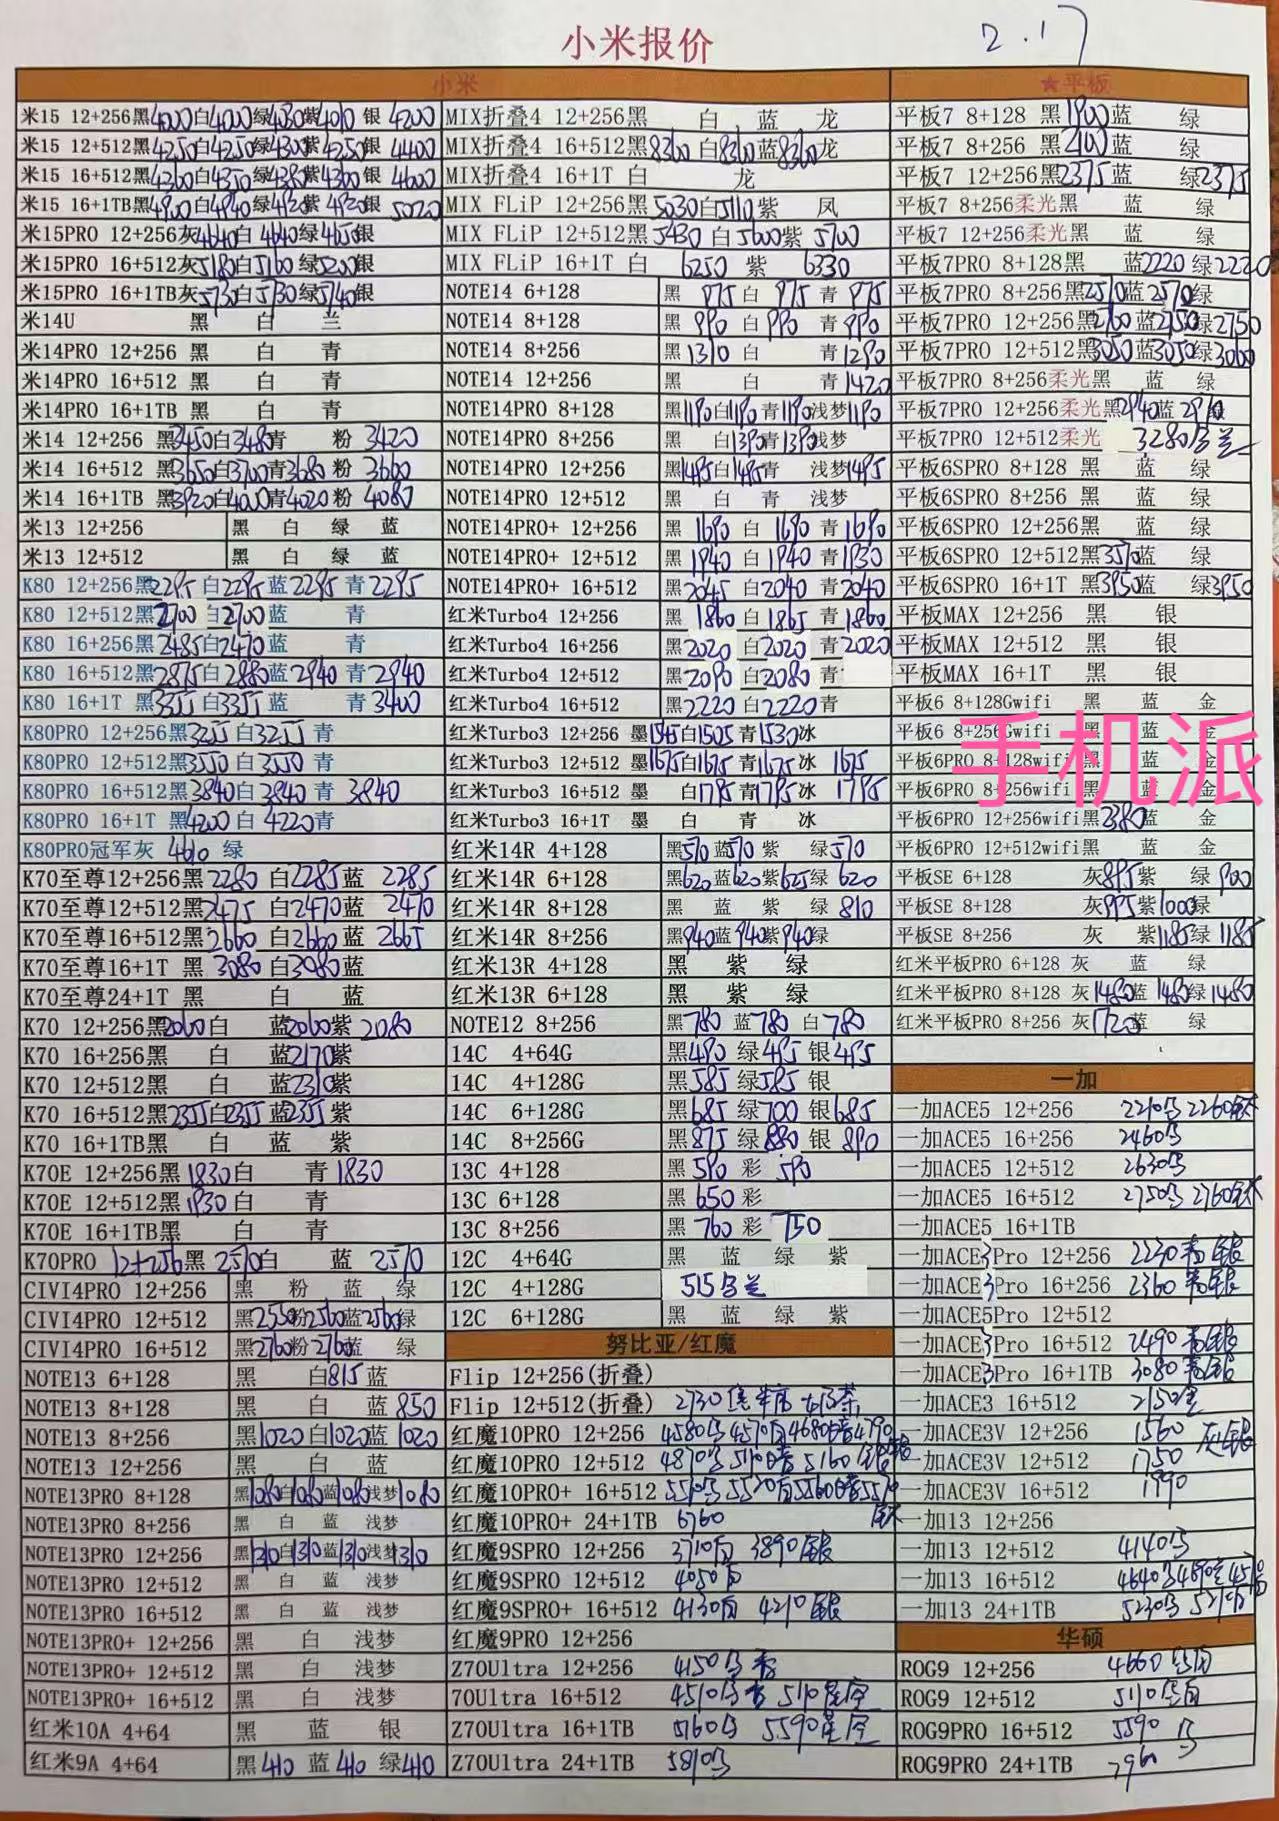 小米报价
2.17
小米
米15 12+256黑4000白4000绿4030紫4010 银 4200
米15 12+512黑4250白4250绿4300紫4250银 4400
米15 16+512黑4360白4350绿4380紫4360银 4600
米15 16+1TB黑4900白4940绿4920紫 4920银 5020
米15PRO 12+256灰4640白 4640绿4650银
米15PRO 16+512灰5180白5160 绿5200银
米15PRO 16+1TB灰5730白5730绿5740银
米14U 黑 白 兰
米14PRO 12+256 黑 白 青
米14PRO 16+512 黑 白 青
米14PRO 16+1TB 黑 白 青
米14 12+256 黑3450白3480青 粉 3420
米14 16+512 黑3650白3700青3680 粉 3660
米14 16+1TB 黑3920白4000青4020 粉 4080
米13 12+256 黑 白 绿 蓝
米13 12+512 黑 白 绿 蓝
K80 12+256黑2295 白2295 蓝 2295 青 2295
K80 12+512黑2700 白2700 蓝 青
K80 16+256黑2485白2470 蓝 青
K80 16+512黑2875白2880蓝 2940 青2940
K80 16+1T 黑3355 白3355 蓝 青 3400
K80PRO 12+256黑3255 白3255 青
K80PRO 12+512黑3550 白3550 青
K80PRO 16+512黑3840白3840 青 3840
K80PRO 16+1T 黑4200 白 4220青
K80PRO冠军灰 4610 绿
K70至尊12+256黑2280 白2285蓝 2285
K70至尊12+512黑2475 白2470蓝 2470
K70至尊16+512黑2660 白2660 蓝 2665
K70至尊16+1T 黑 3080 白3080蓝
K70至尊24+1T 黑 白 蓝
K70 12+256黑2060白 蓝2060紫 2080
K70 16+256黑 白 蓝2170紫
K70 12+512黑 白 蓝2310紫
K70 16+512黑2355白2355 蓝2355 紫
K70 16+1TB黑 白 蓝 紫
K70E 12+256黑 1830白 青 1830
K70E 12+512黑 1930白 青
K70E 16+1TB黑 白 青
K70PRO 12+256黑 2570白 蓝 2570
CIVI4PRO 12+256 黑 粉 蓝 绿
CIVI4PRO 12+512 黑2550粉2560蓝2560绿
CIVI4PRO 16+512 黑2760粉2760蓝 绿
NOTE13 6+128 黑 白815 蓝
NOTE13 8+128 黑 白 蓝 850
NOTE13 8+256 黑1020 白1020蓝 1020
NOTE13 12+256 黑 白 蓝
NOTE13PRO 8+128 黑1080白1080蓝1080浅梦1080
NOTE13PRO 8+256 黑 白 蓝 浅梦
NOTE13PRO 12+256 黑1310白1310蓝1310浅梦1310
NOTE13PRO 12+512 黑 白 蓝 浅梦
NOTE13PRO 16+512 黑 白 蓝 浅梦
NOTE13PRO+ 12+256 黑 白 浅梦
NOTE13PRO+ 12+512 黑 白 浅梦
NOTE13PRO+ 16+512 黑 白 浅梦
红米10A 4+64 黑 蓝 银
红米9A 4+64 黑 410 蓝 410 绿410
MIX折叠4 12+256黑 白 蓝 龙
MIX折叠4 16+512黑8360 白8360蓝8360龙
MIX折叠4 16+1T 白 龙
MIX FLiP 12+256黑5030白5110紫 凤
MIX FLiP 12+512黑5430 白5600紫 5700
MIX FLiP 16+1T 白 6250 紫 6330
NOTE14 6+128 黑 975白 975 青 975
NOTE14 8+128 黑 990 白 990 青 990
NOTE14 8+256 黑1310 白 青1290
NOTE14 12+256 白 青 1420
NOTE14PRO 8+128 黑1190白1190青1190浅梦1190
NOTE14PRO 8+256 黑 白1390青1390浅梦
NOTE14PRO 12+256 黑1495白1495青 浅梦1495
NOTE14PRO 12+512 黑 白 青 浅梦
NOTE14PRO+ 12+256 黑 1690 白 1690 青 1690
NOTE14PRO+ 12+512 黑 1940 白 1940 青 1930
NOTE14PRO+ 16+512 黑2045 白2040 青2040
红米Turbo4 12+256 黑 1860 白 1865 青 1860
红米Turbo4 16+256 黑2020 白2020 青2020
红米Turbo4 12+512 黑2090 白2080 青
红米Turbo4 16+512 黑2220 白2220 青
红米Turbo3 12+256 墨1545白1505青1530冰
红米Turbo3 12+512 墨1675白1675 青1675冰 1675
红米Turbo3 16+512 墨 白1795青1795冰 1795
红米Turbo3 16+1T 墨 白 青 冰
红米14R 4+128 黑510 蓝510 紫 绿510
红米14R 6+128 黑620蓝620紫625绿 620
红米14R 8+128 黑 蓝 紫 绿 810
红米14R 8+256 黑940蓝940紫940绿
红米13R 4+128 黑 紫 绿
红米13R 6+128 黑 紫 绿
NOTE12 8+256 黑780 蓝780 白 780
14C 4+64G 黑490 绿495 银495
14C 4+128G 黑585 绿585 银
14C 6+128G 黑685 绿700 银685
14C 8+256G 黑875 绿880 银 890
13C 4+128 黑 590 彩 590
13C 6+128 黑 650 彩
13C 8+256 黑 760 彩 750
12C 4+64G 黑 蓝 绿 紫
12C 4+128G 515乌兰
12C 6+128G 黑 蓝 绿 紫
努比亚/红魔
Flip 12+256(折叠)
Flip 12+512(折叠) 2730
红魔10PRO 12+256 4580乌4510白4680暗4790
红魔10PRO 12+512 4870乌5110暗 5160银
红魔10PRO+ 16+512 5510乌5520白5560暗5570
红魔10PRO+ 24+1TB 6760
红魔9SPRO 12+256 3710白 3890银
红魔9SPRO 12+512 4050白
红魔9SPRO+ 16+512 4130白 4210银
红魔9PRO 12+256
Z70Ultra 12+256 4150乌
70Ultra 16+512 4510乌 5110星空
Z70Ultra 16+1TB 5160乌 5590星空
Z70Ultra 24+1TB 5810乌
★平板
平板7 8+128 黑1900蓝 绿
平板7 8+256 黑2100蓝 绿
平板7 12+256黑2375蓝 绿2375
平板7 8+256柔光黑 蓝 绿
平板7 12+256柔光黑 蓝 绿
平板7PRO 8+128黑 蓝2220 绿2220
平板7PRO 8+256黑2570蓝2570绿
平板7PRO 12+256黑2760蓝2750绿2750
平板7PRO 12+512黑3050蓝3050绿3060
平板7PRO 8+256柔光黑 蓝 绿
平板7PRO 12+256柔光黑2940蓝 2910
平板7PRO 12+512柔光 3280乌兰
平板6SPRO 8+128 黑 蓝 绿
平板6SPRO 8+256 黑 蓝 绿
平板6SPRO 12+256黑 蓝 绿
平板6SPRO 12+512黑3510蓝 绿
平板6SPRO 16+1T 黑3950蓝 绿3950
平板MAX 12+256 黑 银
平板MAX 12+512 黑 银
平板MAX 16+1T 黑 银
平板6 8+128Gwifi 黑 蓝 金
平板6 8+256Gwifi 黑 蓝 金
手机派
平板6PRO 8+128wifi 黑 蓝 金
平板6PRO 8+256wifi 黑 蓝 金
平板6PRO 12+256wifi黑2380蓝 金
平板6PRO 12+512wifi黑 蓝 金
平板SE 6+128 灰895紫 绿 900
平板SE 8+128 灰995紫1000绿
平板SE 8+256 灰 紫1185绿 1185
红米平板PRO 6+128 灰 蓝 绿
红米平板PRO 8+128 灰 1480蓝 1480绿1480
红米平板PRO 8+256 灰1720蓝 绿
一加
一加ACE5 12+256 2210乌 2260
一加ACE5 16+256 2460乌
一加ACE5 12+512 2630乌
一加ACE5 16+512 2750乌 2760
一加ACE5 16+1TB
一加ACE3Pro 12+256 2230青银
一加ACE3Pro 16+256 2360青银
一加ACE5Pro 12+512
一加ACE3Pro 16+512 2490青银
一加ACE3Pro 16+1TB 3080青银
一加ACE3 16+512 2150金
一加ACE3V 12+256 1560 灰银
一加ACE3V 12+512 1750
一加ACE3V 16+512 1990
一加13 12+256
一加13 12+512 4140乌
一加13 16+512 4640乌4690
一加13 24+1TB 5230乌
华硕
ROG9 12+256 4660乌白
ROG9 12+512 5110乌白
ROG9PRO 16+512 5590 乌
ROG9PRO 24+1TB 7960 乌